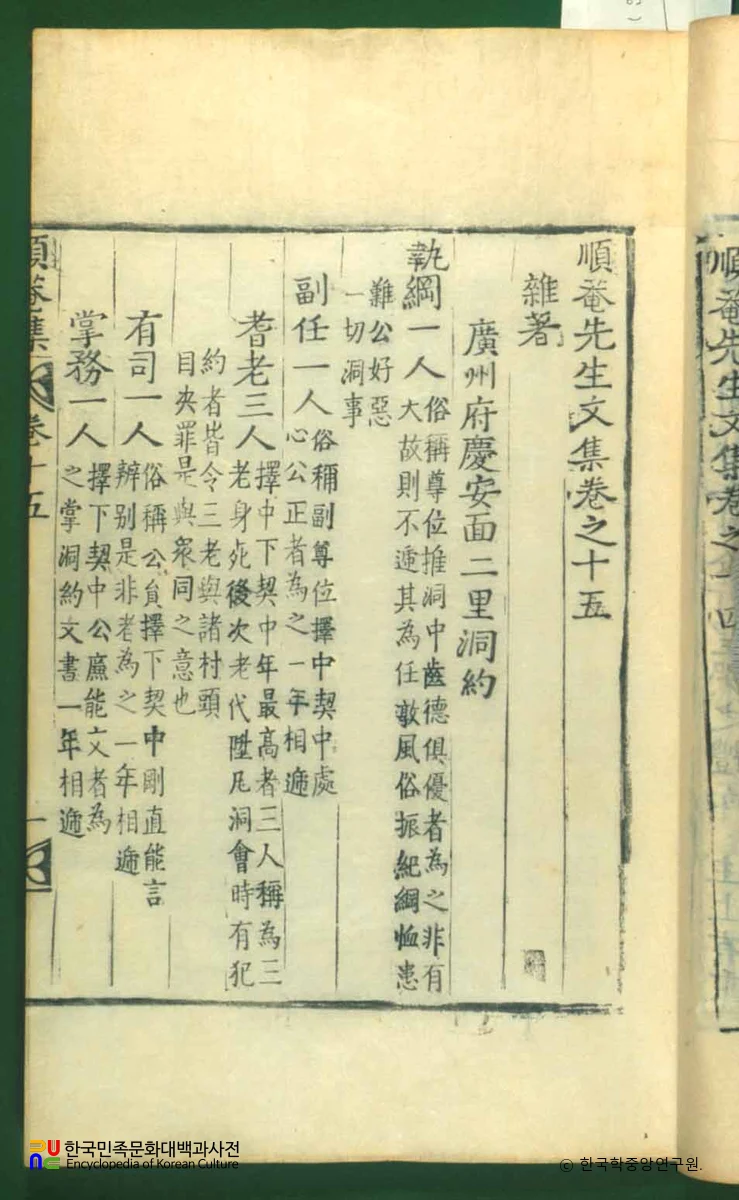 順菴先生文集卷之十四
順菴先生文集卷之十五
雜著
廣州府慶安面二里洞約
執綱一人 俗稱尊位推洞中齒德俱優者為之非有
大故則不遞其為任敦風俗振紀綱恤患
難公好惡
一切洞事
副任一人 俗稱副尊位擇中契中處
心公正者為之一年相遞
耆老三人 擇中下契中年最高者三人稱為三
老身死後次老代陞凡洞會時有犯
約者皆令三老與諸村頭
目夬罪是與衆同之意也
有司一人 俗稱公員擇下契中剛直能言
辨别是非者為之一年相遞
掌務一人 擇下契中公廉能文者為
之掌洞約文書一年相遞
順菴集 卷十五 一
한국민족문화대백과사전
Encyclopedia of Korean Culture
© 한국학중앙연구원.